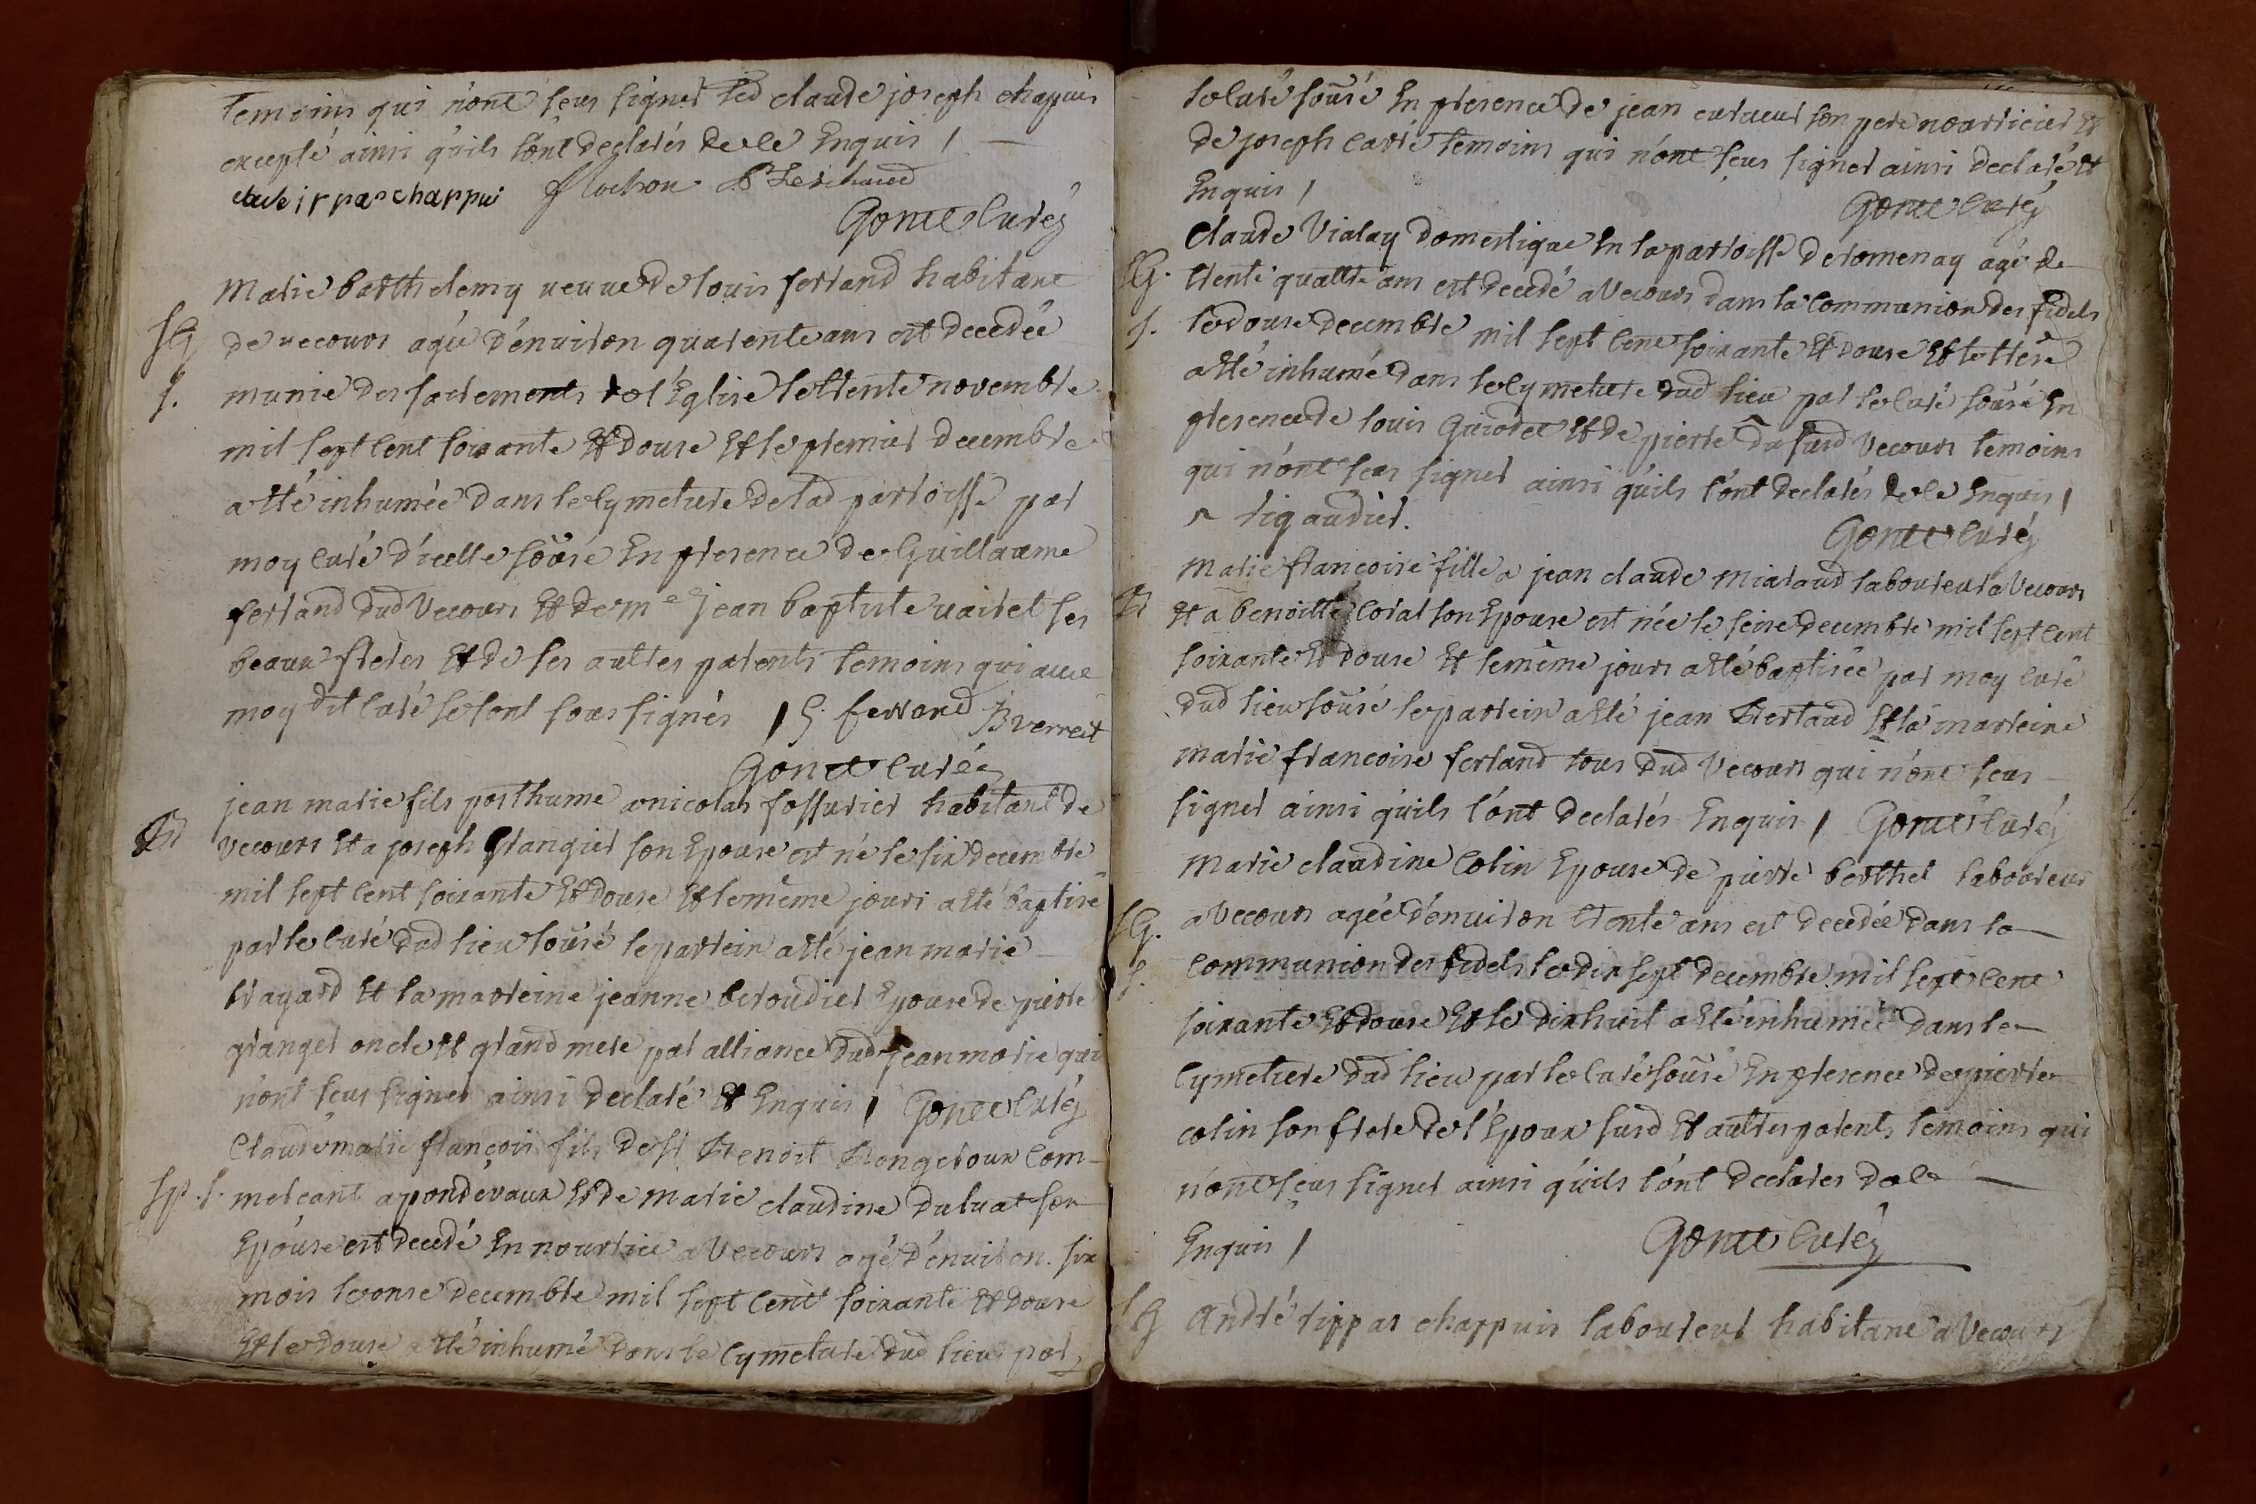 temoins qui n'ont seus signer led claude joseph chapuis
excepté ainsi qu'ils l'ont declarés de ce Enquis /
chappui flochon
Gonet Curéz
Marie barthelemy veuve de louis ferrand habitant
SG de vecours agée d'environ quarente ans est decedée
S. munie des sacrements de l'Eglise le trente novembre
mil sept cent soixante Et douse Et le premier decembre
a été inhumée dans le cymetiere de lad parroisse par
moy curé d'icelle soûsé En presence de Guillaume
ferrand dud Vecours Et de me jean baptiste vairet ses
beaux freres Et de ses aultes parents temoins qui avec
moy dit curé se sont sous signés / G. ferrand JB verreit
Gonet Curéz
jean marie fils posthume a nicolas fossurier habitant de
Bt vecours Et a joseph Grangier son Epouse est né le six decembre
mil sept cent soixante Et douse Et le même jours a été baptisé
par le curé dud lieu soûsé le parrein a été jean marie
brayard Et la marreine jeanne beroudier Epouse de pierre
granger oncle Et grand mere par alliance dud jean marie qui
n'ont seus signer ainsi declaré Et Enquis / Gonet Curéz
Claude marie françois fils de sr Benoit Rongeroux Com-
SP. S. mercant a pondevaux Et de marie claudine duluat son
Epouse est decedé En nourrice a Vecours agé d'environ six
mois le onse decembre mil sept cent soixante Et douse
Et le douse a été inhumé dans le cymetiere dud lieu par
le curé soûsé En presence de jean cutueur son pere nourricier Et
de joseph carré temoins qui n'ont seus signer ainsi declaré Et
Enquis /
Gonet Curéz
Claude Vialay domestique En la parroisse de romenay agé de
SG. trente quattre ans est decedé a Vecours dans la Communion des fidels
S. le douse decembre mil sept cent soixante Et douse Et le treise
a été inhumé dans le cymetiere dud lieu par le curé soûsé En
presence de louis Guiodet Et de pierre ^ du susd Vecours temoins
qui n'ont seus signer ainsi qu'ils l'ont declarés de ce Enquis /
^ rigaudier.
Gonet Curéz
Marie françoise fille a jean claude miataud laboureur a Vecours
Bt Et a benoitte Corat son Epouse est née le seise decembre mil sept cent
soixante Et douse Et le même jours a été baptisée par moy curé
dud lieu soûsé le parrein a été jean Bertaud Et la marreine
marie francoise ferrand tous dud Vecours qui n'ont seus
signer ainsi qu'ils l'ont declarés Enquis / Gonet Curéz
Marie claudine Colin Epouse de pierre berthet laboureur
SG. a Vecours agée d'environ trente ans est decedée dans la
S. Communion des fidels le dix sept decembre mil sept cent
soixante Et douse Et le dix huit a été inhumée dans le
Cymetiere dud lieu par le curé soûsé En presence de pierre
colin son frere de l'Epoux susd Et aultes parents temoins qui
n'ont seus signer ainsi qu'ils l'ont declarés de ce
Enquis /
Gonet Curéz
SG André rippas chappuis laboureur habitant a Vecours